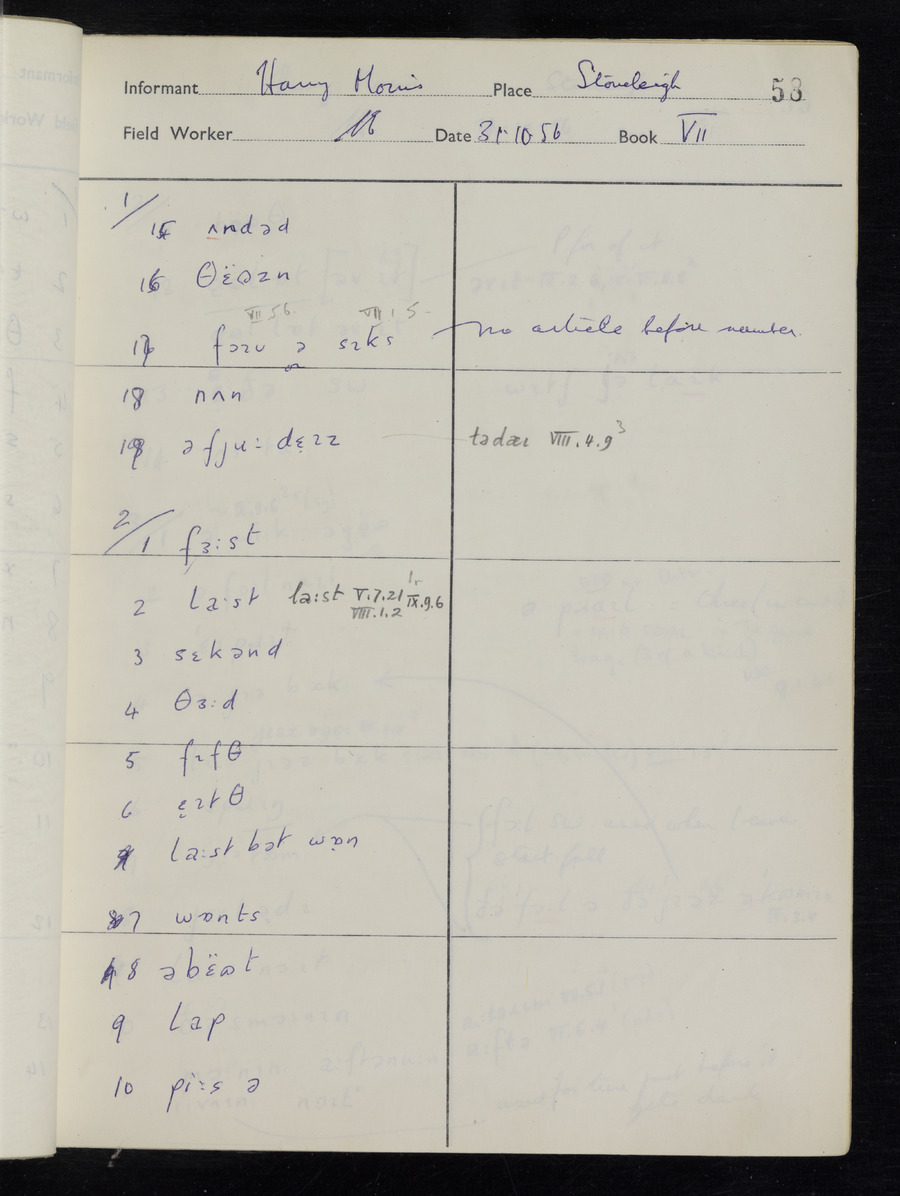 Informant Harry Morris Place Stoneleigh 58
Field Worker Date 31·10·56 Book VII
1/
15 ʌndəd
16 θɛ̈ʊzn
VII 5.6. VII.1.5
17 fəɪv ə sɪks no article before number.
or
18 nʌn
19 ə fju: dɛ̣ɪz tədæɪ VIII.4.9³
2/
1 fɜ:st
2 la:st la:st V.7.21 IX.9.6
VIII.1.2
3 sɛkənd
4 θɜ:d
5 fɪfθ
6 ɛ̣ɪtθ
la:st bət wɒ̣n
7 wɒnts
8 əbɛ̈ʊt
9 lap
10 pi:s ə